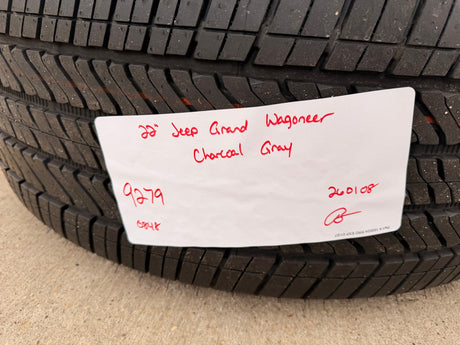 22" Jeep Grand Wagoneer
Charcoal Gray
9279
260108